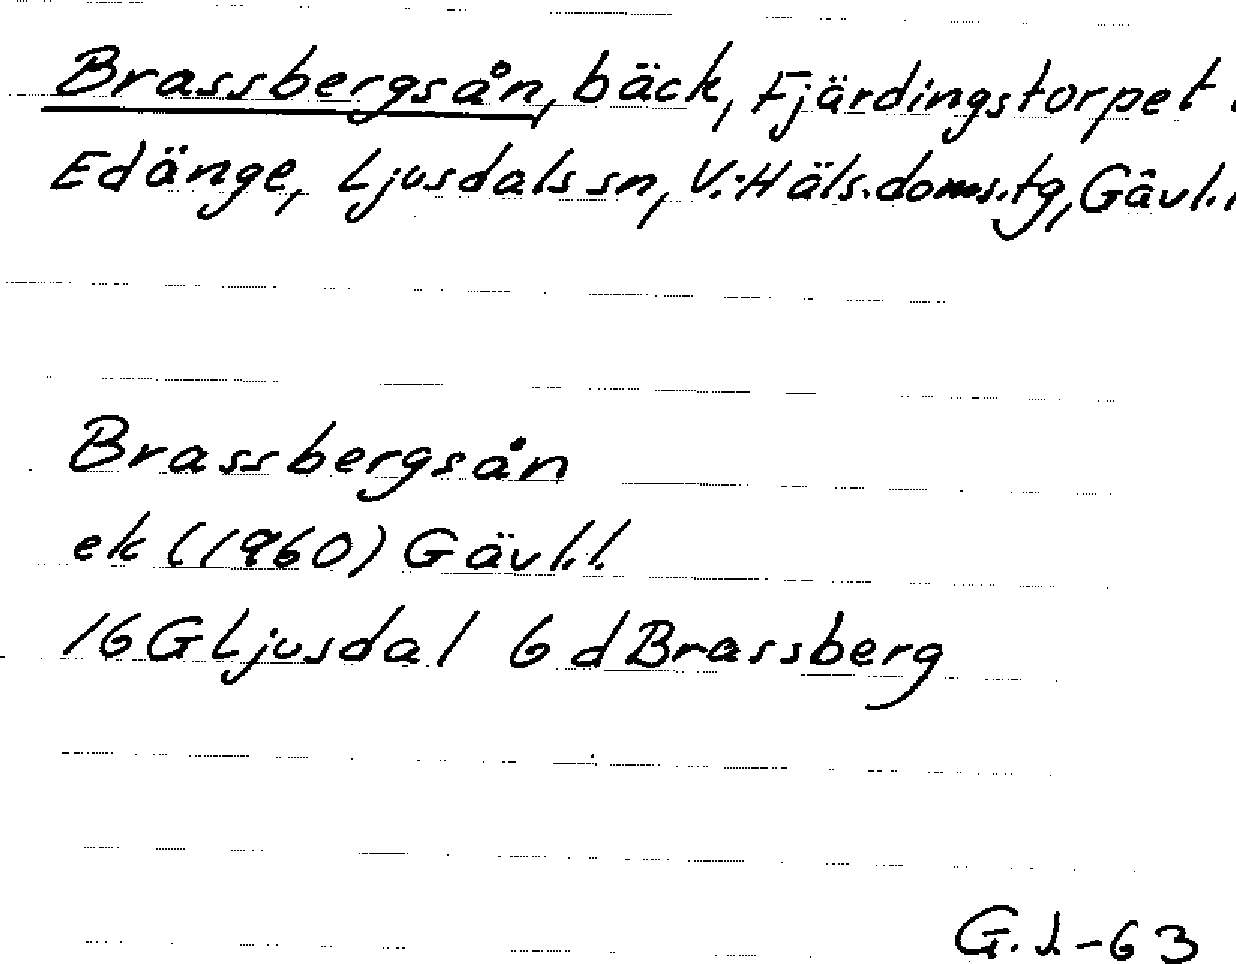 Brassbergsån, bäck, Fjärdingstorpet.
Edänge, Ljusdals sn, V. Häls. doms.tg, Gävl.l
Brassbergsån
ek (1960) Gävl.l.
16 G Ljusdal 6 d Brassberg
G.L-63